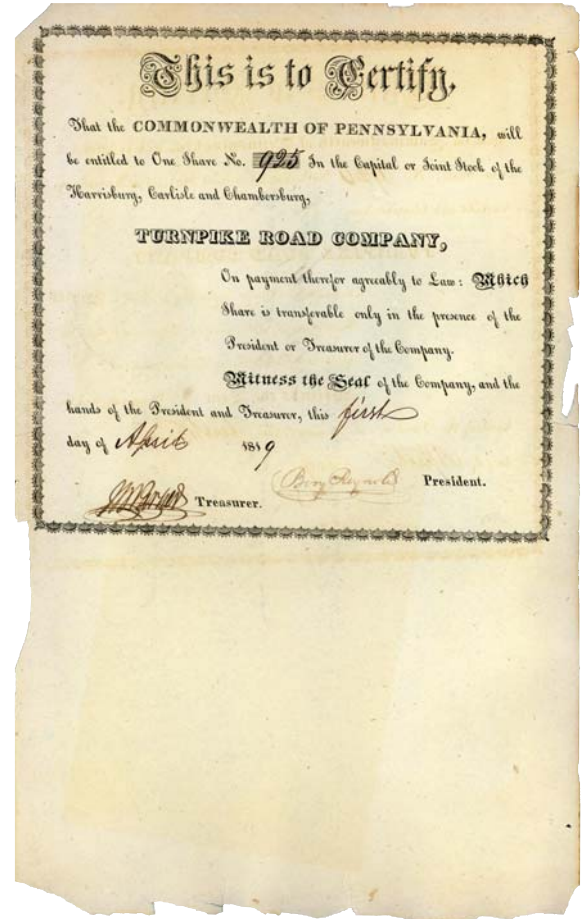 This is to Certify,
That the COMMONWEALTH OF PENNSYLVANIA, will
be entitled to One Share No. 925 In the Capital or Joint Stock of the
Harrisburg, Carlisle and Chambersburg,
TURNPIKE ROAD COMPANY,
On payment therefor agreeably to Law: Which
Share is transferable only in the presence of the
President or Treasurer of the Company.
Witness the Seal of the Company, and the
hands of the President and Treasurer, this first
day of April 1819
President.
Treasurer.